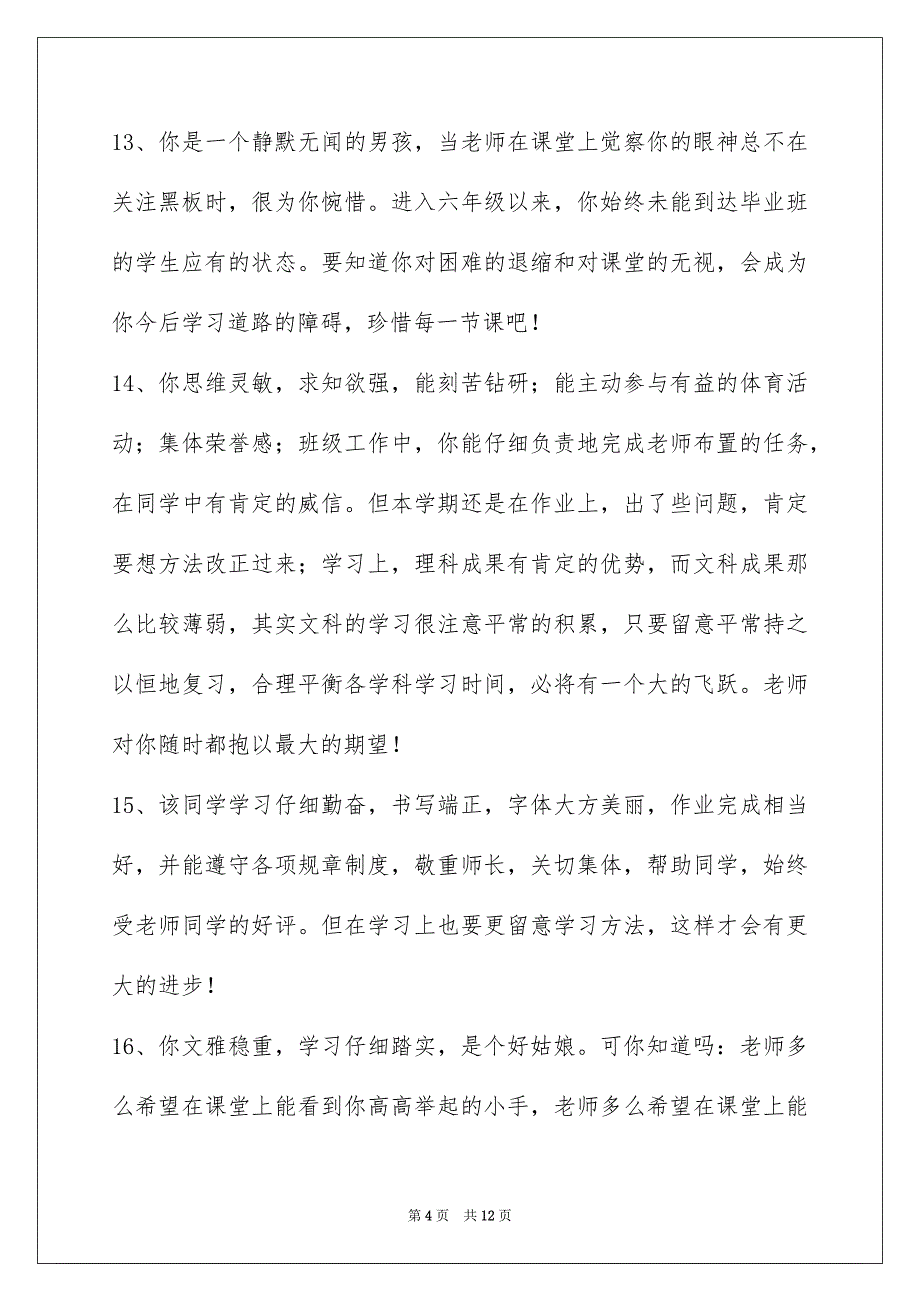 13、你是一个静默无闻的男孩，当老师在课堂上觉察你的眼神总不在
关注黑板时，很为你惋惜。进入六年级以来，你始终未能到达毕业班
的学生应有的状态。要知道你对困难的退缩和对课堂的无视，会成为
你今后学习道路的障碍，珍惜每一节课吧！
14、你思维灵敏，求知欲强，能刻苦钻研；能主动参与有益的体育活
动；集体荣誉感；班级工作中，你能仔细负责地完成老师布置的任务，
在同学中有肯定的威信。但本学期还是在作业上，出了些问题，肯定
要想方法改正过来；学习上，理科成果有肯定的优势，而文科成果那
么比较薄弱，其实文科的学习很注意平常的积累，只要留意平常持之
以恒地复习，合理平衡各学科学习时间，必将有一个大的飞跃。老师
对你随时都抱以最大的期望！
15、该同学学习仔细勤奋，书写端正，字体大方美丽，作业完成相当
好，并能遵守各项规章制度，敬重师长，关切集体，帮助同学，始终
受老师同学的好评。但在学习上也要更留意学习方法，这样才会有更
大的进步！
16、你文雅稳重，学习仔细踏实，是个好姑娘。可你知道吗：老师多
么希望在课堂上能看到你高高举起的小手，老师多么希望在课堂上能
第 4 页 共 12 页